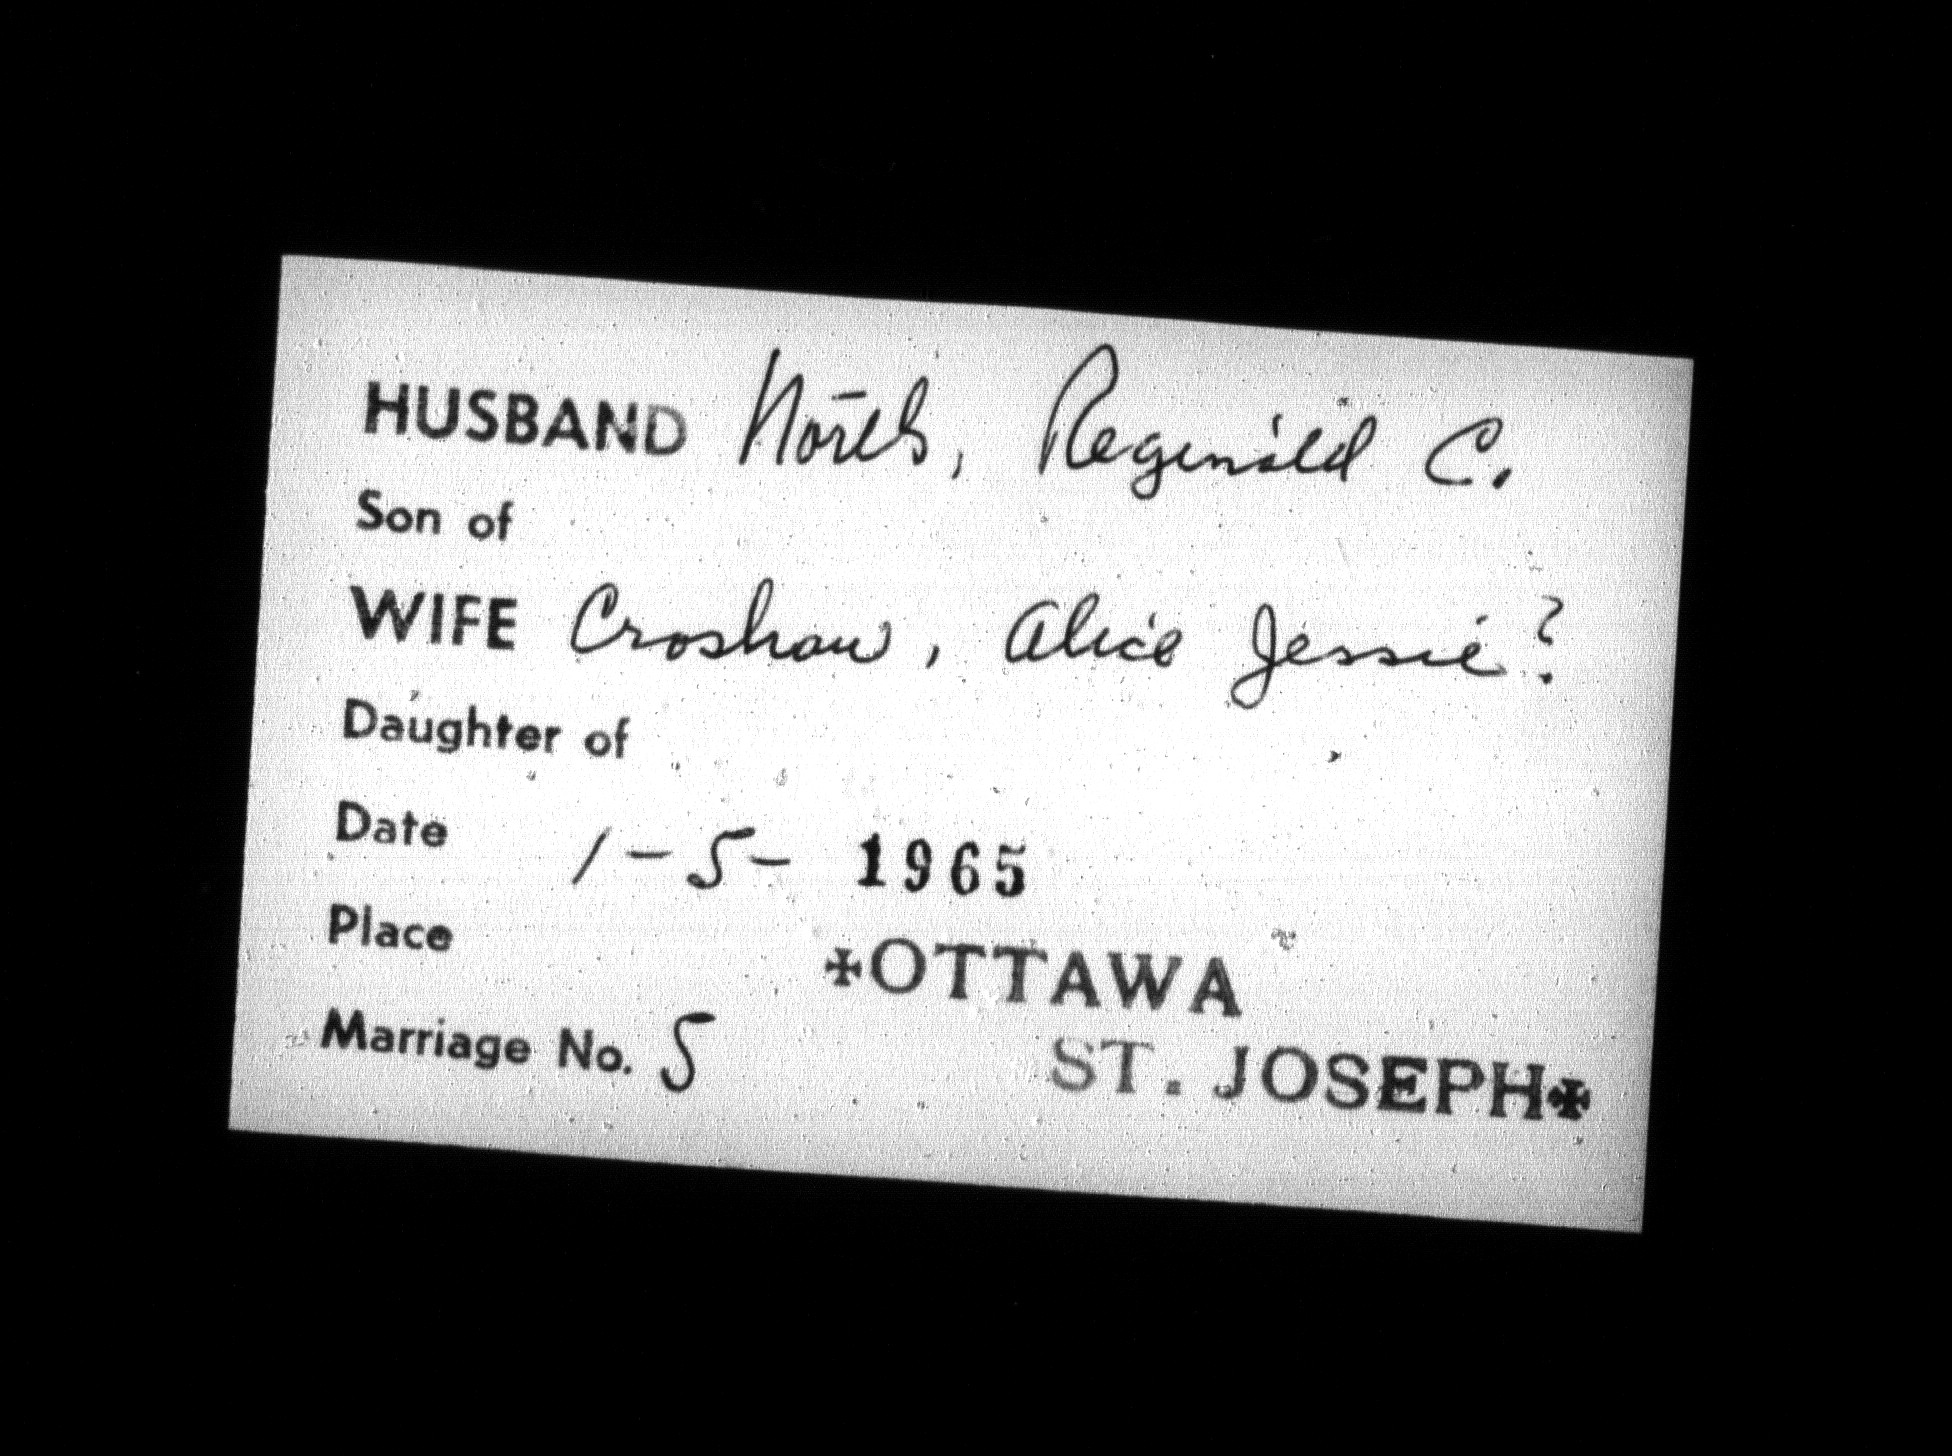 HUSBAND North, Reginald C.
Son of
WIFE Croshaw, Alice Jessie?
Daughter of
Date 1-5- 1965
Place ✠OTTAWA
ST. JOSEPH✠
Marriage No. 5